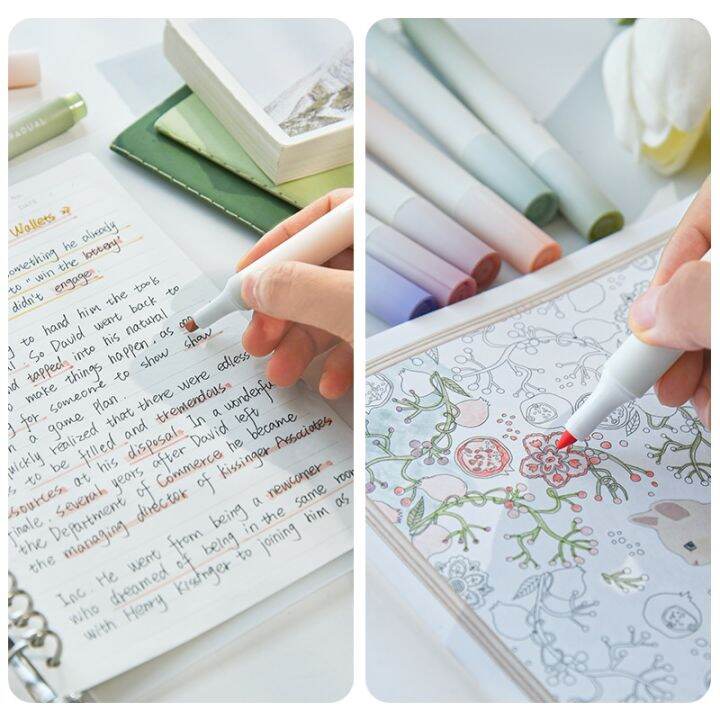 RADUAL
DATE
Wallets
something he already
to "win the lottery"
didn't engage
to hand him the tools
So David went back to
tapped into his natural
to make things happen, as
for someone to show
show
a game plan.
realized that there were
to be filled and tremendous
at his disposal. In a wonderful
several years after David left
the Department of Commerce he became
the managing director of Kissinger Associates
Inc. He went from being a newcomer
who dreamed of being in the same room
with Henry Kissinger to joining him as